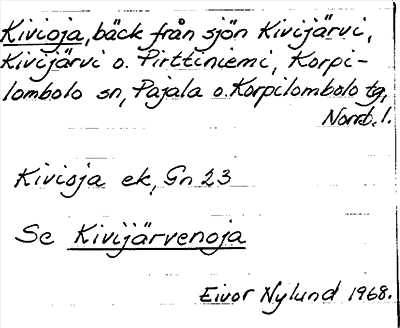 Kivioja, bäck från sjön Kivijärvi,
Kivijärvi o. Pirttiniemi, Korpi-
lombolo sn, Pajala o. Korpilombolo tg,
Norrb. l.
Kivioja ek, Gn 23
Se Kivijärvenoja
Eivor Nylund 1968.